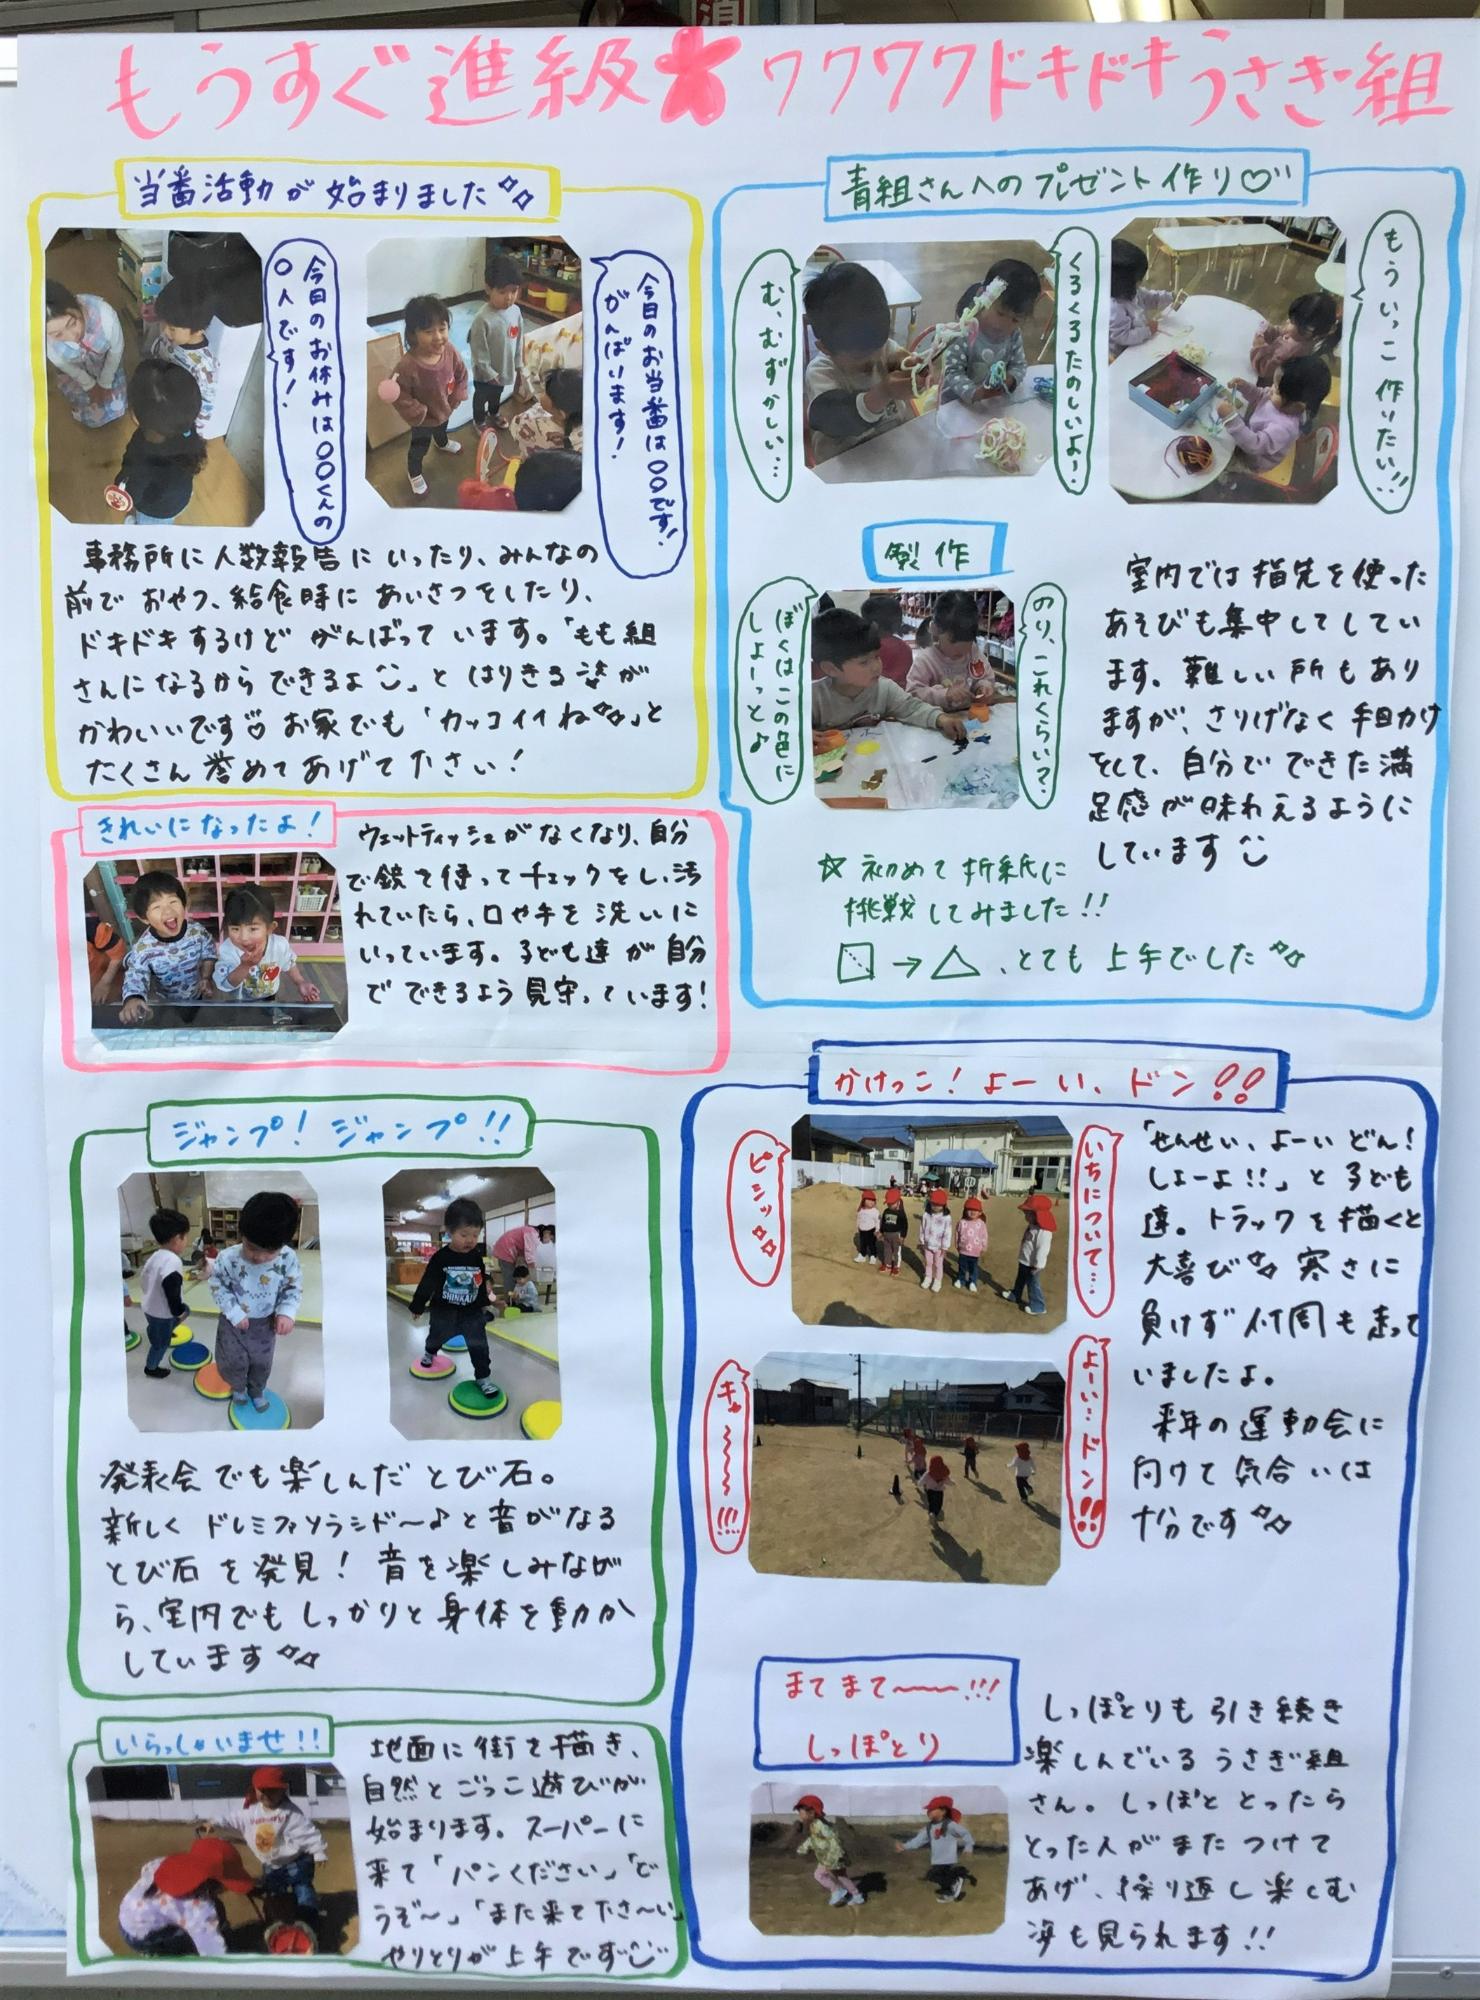 もうすぐ進級 ワクワクドキドキうさぎ組
当番活動が始まりました
今日のお休みは〇〇くんの
〇人です!
今日のお当番は〇〇です!
がんばります!
事務所に人数報告にいったり、みんなの
前でおやつ、給食時にあいさつをしたり、
ドキドキするけどがんばっています。「もも組
さんになるからできるよ」とはりきる姿が
かわいいです♡お家でも「カッコイイね」と
たくさん誉めてあげて下さい!
きれいになったよ!
ウェットティッシュがなくなり、自分
で鏡を使ってチェックをし、汚
れていたら、口や手を洗いに
いっています。子ども達が自分
でできるよう見守っています!
青組さんへのプレゼント作り♡
む、むずかしい…
くるくるたのしいよー
もういっこ作りたい!!
製作
ぼくはこの色に
しよーっと♪
のり、これくらい?
室内では指先を使った
あそびも集中してしてい
ます。難しい所もあり
ますが、さりげなく手助け
をして、自分でできた満
足感が味わえるように
しています
☆初めて折紙に
挑戦してみました!!
□→△、とても上手でした
ジャンプ!ジャンプ!!
発表会でも楽しんだとび石。
新しくドレミファソラシド〜♪と音がなる
とび石を発見!音を楽しみなが
ら、室内でもしっかりと身体を動か
しています
いらっしゃいませ!!
地面に街を描き、
自然とごっこ遊びが
始まります。スーパーに
来て「パンください」「ど
うぞ〜」「また来て下さ〜い」
やりとりが上手です
かけっこ!よーい、ドン!!
ピシッ
いちについて…
キャ〜〜〜!!!
よーい…ドン!!
「せんせい、よーいどん!
しよーよ!!」と子ども
達。トラックを描くと
大喜び 寒さに
負けず何周も走って
いましたよ。
来年の運動会に
向けて気合いは
十分です
まてまて〜〜!!!
しっぽとり
しっぽとりも引き続き
楽しんでいるうさぎ組
さん。しっぽをとったら
とった人がまたつけて
あげ、繰り返し楽しむ
姿も見られます!!